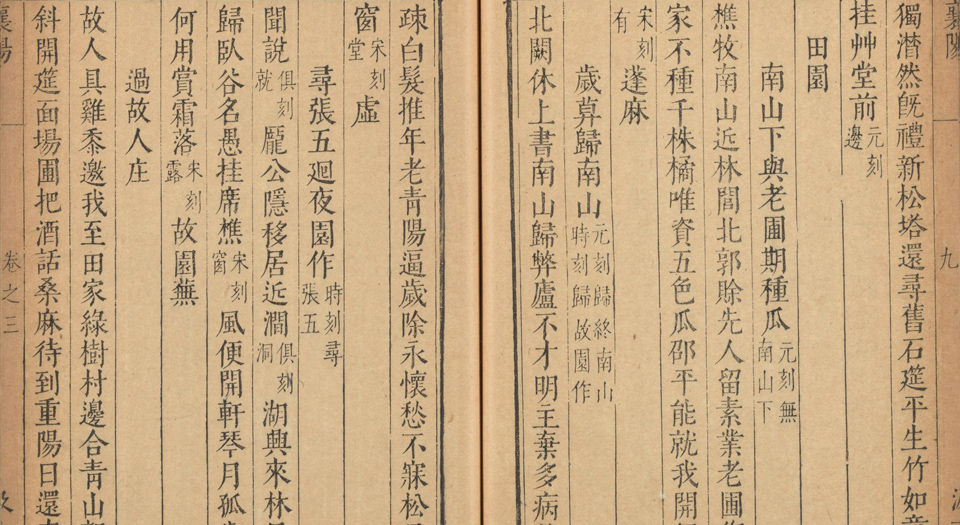 襄陽 九
獨潸然旣禮新松塔還尋舊石筵平生竹如意
挂艸堂前元刻邊
田園
南山下與老圃期種瓜元刻無南山下
樵牧南山近林閭北郭賒先人留素業老圃作
家不種千株橘唯資五色瓜邵平能就我開徑
有宋刻蓬麻
歲暮歸南山元刻歸終南山時刻歸故園作
北闕休上書南山歸弊廬不才明主棄多病
疎白髮推年老青陽逼歲除永懷愁不寐松月
窗宋刻堂虛
尋張五迴夜園作時刻尋張五
聞說俱刻就龐公隱移居近澗俱刻洞湖興來林
歸臥谷名愚挂席樵宋刻窗風便開軒琴月孤
何用賞霜落宋刻露故園蕪
過故人庄
故人具雞黍邀我至田家綠樹村邊合青山郭
斜開筵面場圃把酒話桑麻待到重陽日還來
襄陽 卷之三